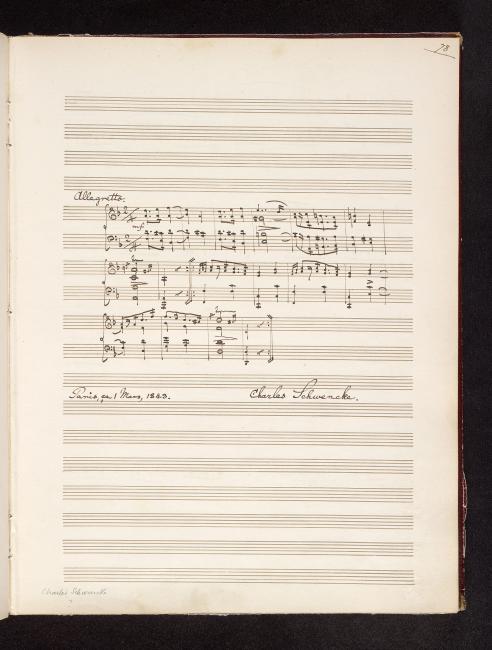 78
Allegretto.
mf
Paris, ce 1 Mars, 1843.
Charles Schwencke.
Charles Schwencke